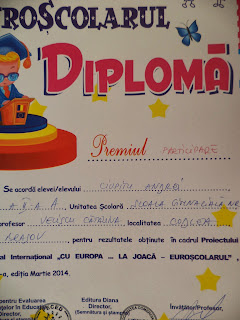 ROȘCOLARUL
DIPLOMĂ
Premiul PARTICIPARE
Se acordă elevei/elevului CIUPITU ANDREI
a II-a A, Unitatea Școlară ȘCOALA GIMNAZIALĂ NR
profesor CĂTĂLINA localitatea CODLEA
BRAȘOV, pentru rezultatele obținute în cadrul Proiectului
al Internațional „CU EUROPA ... LA JOACĂ - EUROȘCOLARUL",
-a, ediția Martie 2014.
pentru Evaluarea
Editura Diana
Director,
(Semnătura și ștampila)
Învățător/Profesor,
Director,